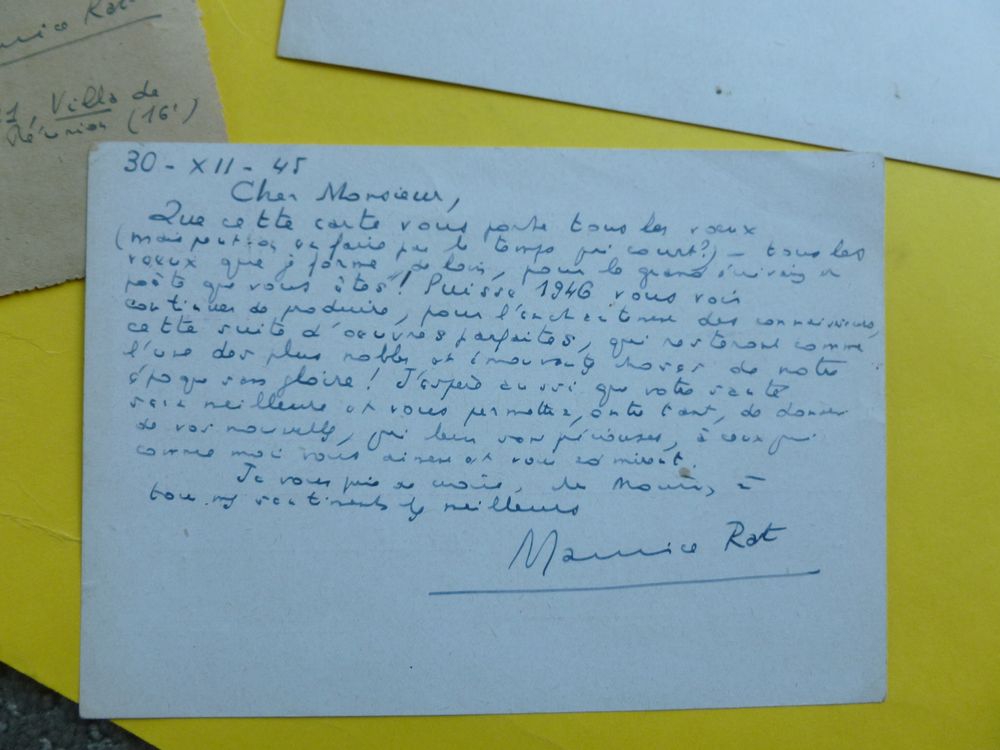 Maurice Rat
21, Villa de
Réunion (16e)
30 - XII - 45
Cher Monsieur,
Que cette carte vous porte tous les vœux
(mais peut-on en faire par le temps qui court?) – tous les
vœux que je forme, de loin, pour le grand écrivain et
poète que vous êtes! Puisse 1946 vous voir
continuer de produire, pour l'enchantement des connaisseurs,
cette suite d'œuvres parfaites, qui resteront comme
l'une des plus nobles et émouvantes choses de notre
époque sans gloire! J'espère aussi que votre santé
sera meilleure et vous permettra, entre tant, de donner
de vos nouvelles, qui leur sont précieuses, à ceux qui
comme moi vous aiment et vous admirent.
Je vous prie de croire, cher Monsieur, à
tous mes sentiments les meilleurs
Maurice Rat